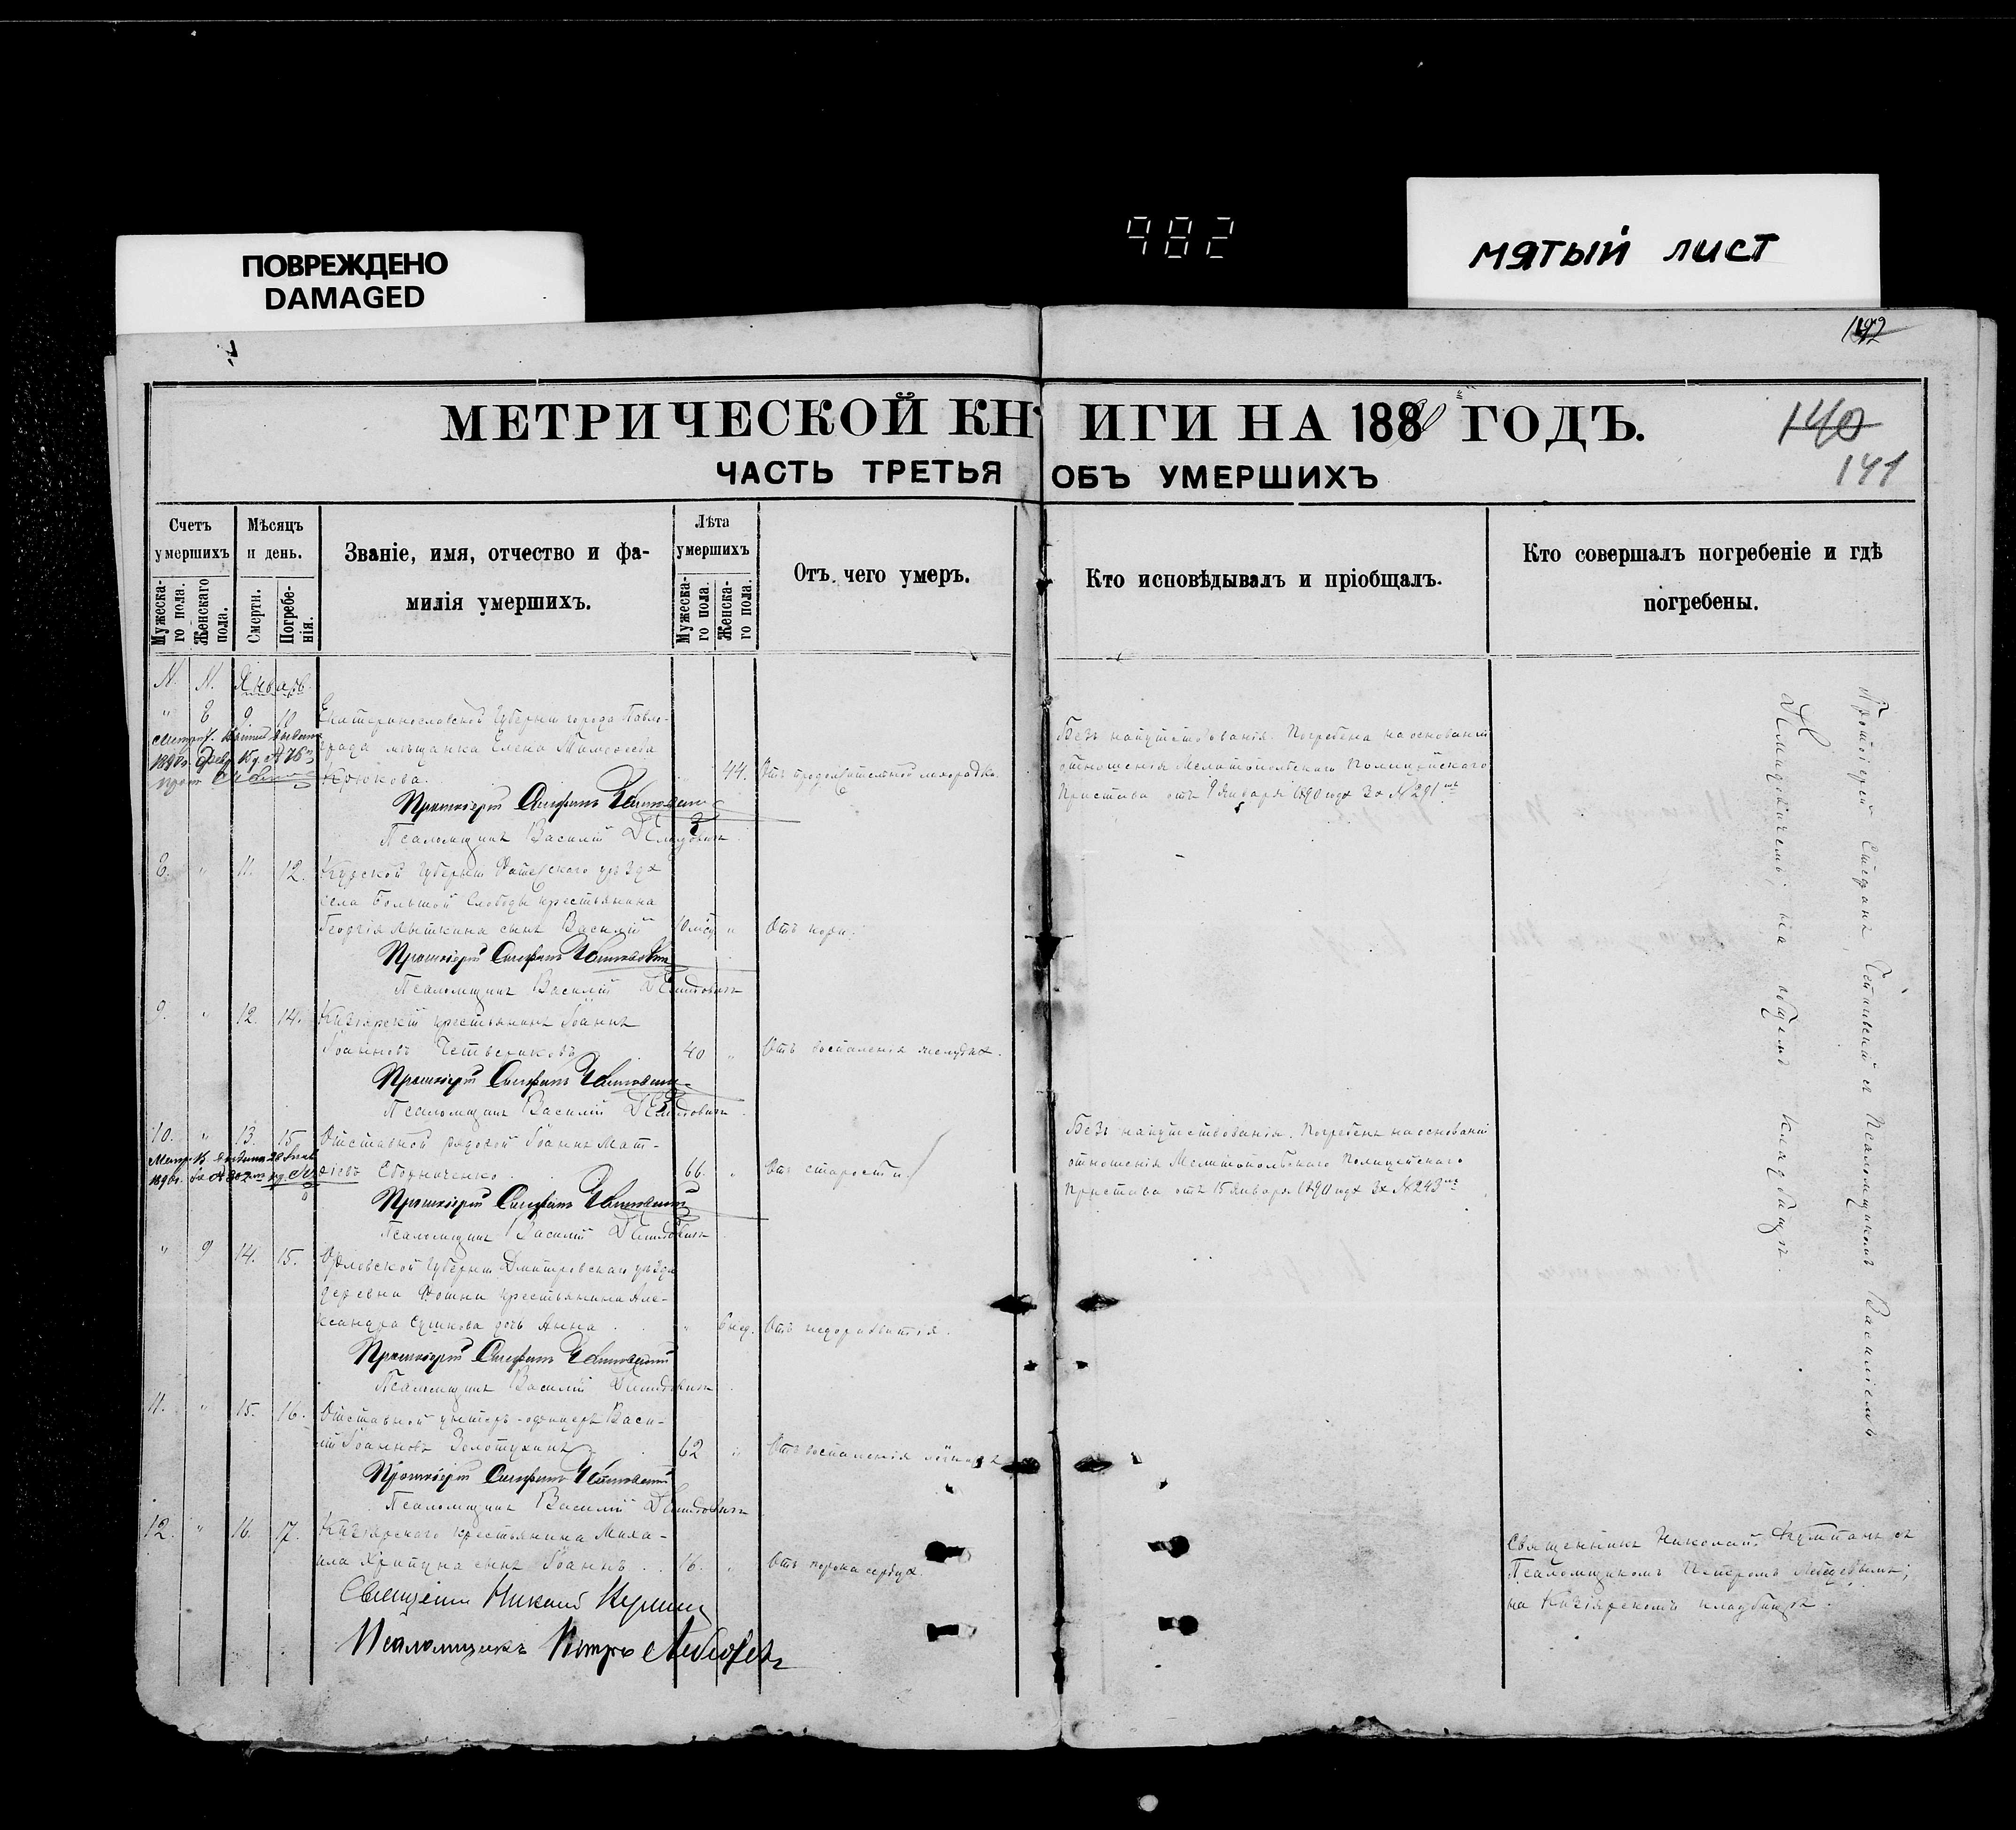 982
ПОВРЕЖДЕНО
DAMAGED
мятый лист
МЕТРИЧЕСКОЙ КНИГИ НА 1890 ГОДЪ.
140
141
ЧАСТЬ ТРЕТЬЯ ОБЪ УМЕРШИХЪ
Счетъ умершихъ
Мужескаго пола.
Женскаго пола.
Мѣсяцъ и день.
Смерти.
Погребенія.
Званіе, имя, отчество и фамилія умершихъ.
Лѣта умершихъ
Мужескаго пола.
Женскаго пола.
Отъ чего умеръ.
Кто исповѣдывалъ и пріобщалъ.
Кто совершалъ погребеніе и гдѣ погребены.
N. N. Январь.
" 8 9. 10 Екатеринославской Губерніи города Павло-
града мѣщанка Елена Тимофеева
Крюкова. 44. Отъ продолжительной лихорадки.
Безъ напутствованія. Погребена на основаніи
отношенія Мелитопольскаго Полицейскаго
Пристава отъ 9 Января 1890 года за № 291
Протоіерей Стефанъ
Псаломщикъ Василій
8. " 11. 12. Курской Губерніи Фатежскаго уѣзда
села Большой Слободы крестьянина
Георгія Лыткина сынъ Василій 10 мѣс. " Отъ кори.
Протоіерей Стефанъ
Псаломщикъ Василій
9. " 12. 14. Кизіярскій крестьянинъ Іоаннъ
Іоанновъ Четвериковъ 40 " Отъ воспаленія желудка.
Протоіерей Стефанъ
Псаломщикъ Василій
10. " 13. 15. Отставной рядовой Іоаннъ Мат-
ѳіевъ 66. " Отъ старости.
Безъ напутствованія. Погребенъ на основаніи
отношенія Мелитопольскаго Полицейскаго
Пристава отъ 15 Января 1890 года за № 243
Протоіерей Стефанъ
Псаломщикъ Василій
" 9 14. 15. Орловской Губерніи Дмитровскаго уѣзда
деревни крестьянина Але-
ксандра Сушкова дочь Анна " 6 нед. Отъ недоразвитія.
Протоіерей Стефанъ
Псаломщикъ Василій
11. " 15. 16. Отставной унтеръ-офицеръ Васи-
лій Іоанновъ Золотухинъ 62 " Отъ воспаленія легкихъ
Протоіерей Стефанъ
Псаломщикъ Василій
12. " 16. 17. Кизіярскаго крестьянина Миха-
ила сынъ Іоаннъ 16. " Отъ порока сердца.
Священникъ Николай
Псаломщикъ Петръ Лебедевъ
Протоіерей Стефанъ съ Псаломщикомъ Василіемъ
на общемъ кладбищѣ.
Священникъ Николай съ
Псаломщикомъ Петромъ Лебедевымъ;
на Кизіярскомъ кладбищѣ.